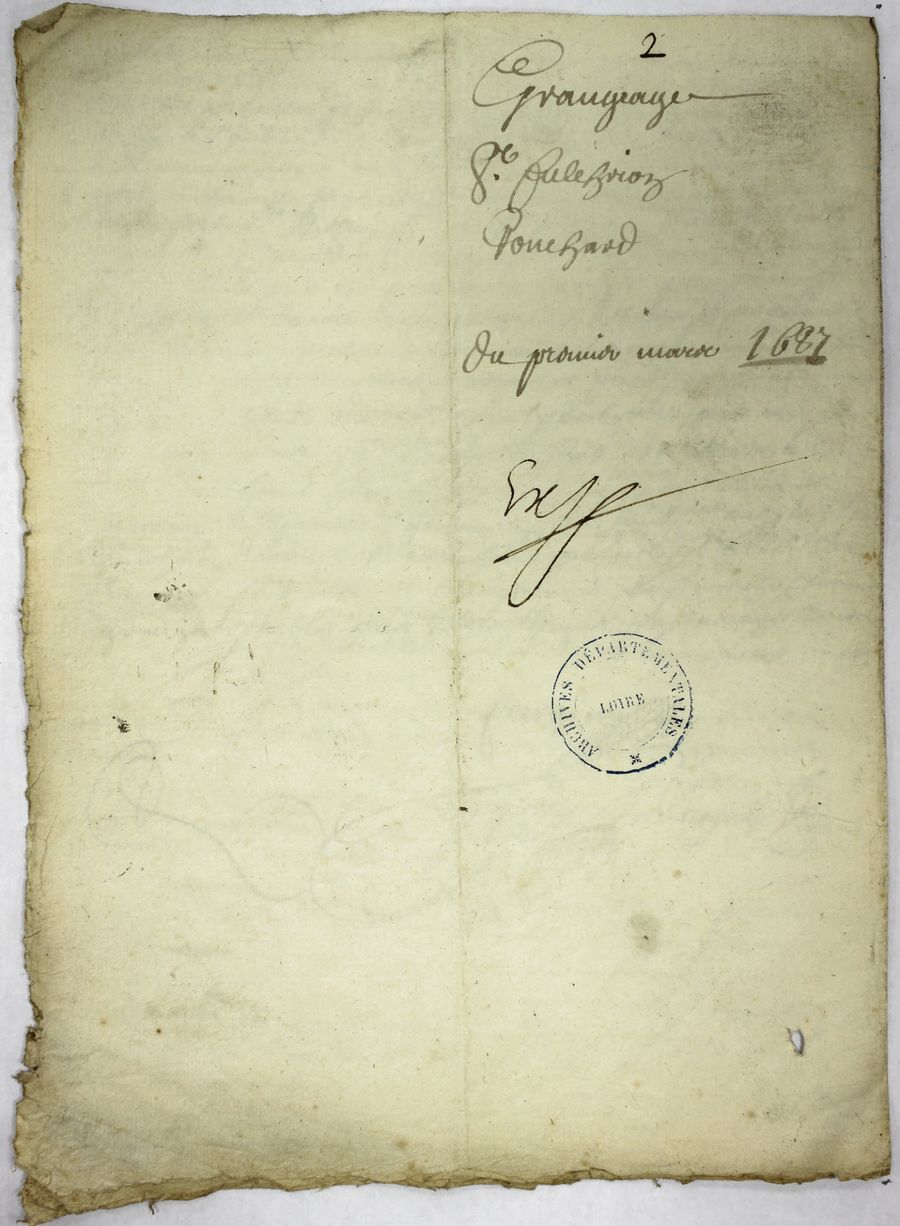 2
Grangeage
Sr
Ponchard
Du premier mars 1687
Exp
ARCHIVES DÉPARTEMENTALES
LOIRE